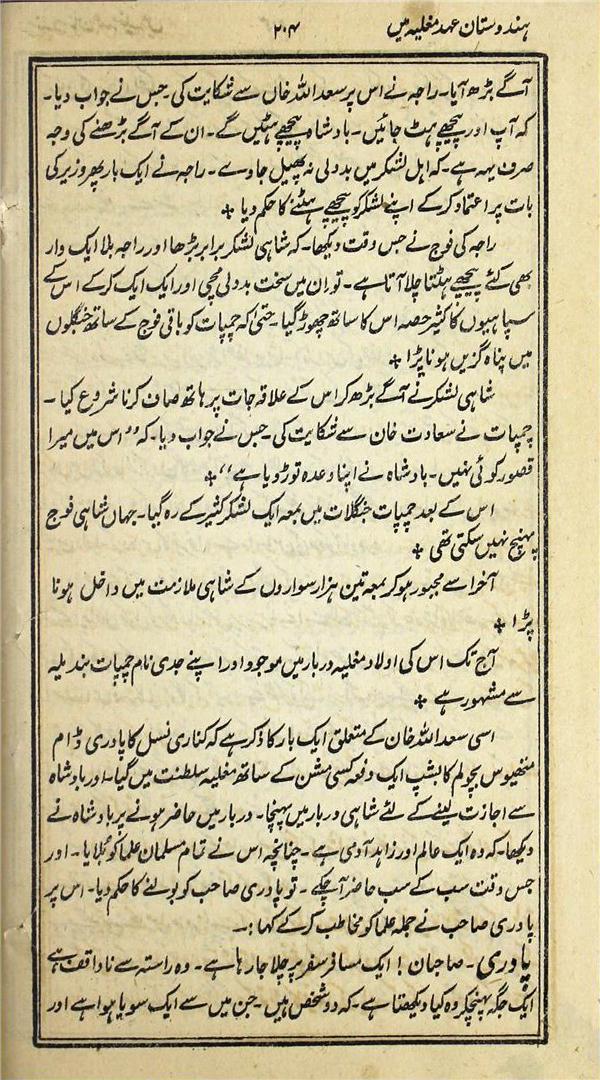 ہندوستان عہد مغلیہ میں
۲۰۴
آگے بڑھ آیا۔ راجہ نے اس پر سعد اللہ خاں سے شکایت کی جس نے جواب دیا۔
کہ آپ اور پیچھے ہٹ جائیں۔ بادشاہ پیچھے ہٹیں گے۔ ان کے آگے بڑھنے کی وجہ
صرف یہہ ہے۔ کہ اہل لشکر میں بددلی نہ پھیل جاوے۔ راجہ نے ایک بار پھر وزیر کی
بات پر اعتماد کرکے اپنے لشکر کو پیچھے ہٹنے کا حکم دیا ٭
راجہ کی فوج نے جس وقت دیکھا۔ کہ شاہی لشکر برابر بڑھا اور راجہ بلا ایک وار
بھی کئے پیچھے ہٹتا چلا آتا ہے۔ تو ان میں سخت بددلی مچی اور ایک ایک کرکے اس کے
سپاہیوں کا کثیر حصہ اس کا ساتھ چھوڑ گیا۔ حتیٰ کہ چمپات کو باقی فوج کے ساتھ جنگلوں
میں پناہ گزیں ہونا پڑا ٭
شاہی لشکر نے آگے بڑھ کر اس کے علاقہ جات پر ہاتھ صاف کرنا شروع کیا۔
چمپات نے سعادت خان سے شکایت کی۔ جس نے جواب دیا۔ کہ ’’اس میں میرا
قصور کوئی نہیں۔ بادشاہ نے اپنا وعدہ توڑ دیا ہے‘‘ ٭
اس کے بعد چمپات جنگلات میں بمعہ ایک لشکر کثیر کے رہ گیا۔ جہاں شاہی فوج
پہنچ نہیں سکتی تھی ٭
آخر اسے مجبور ہو کر بمعہ تین ہزار سواروں کے شاہی ملازمت میں داخل ہونا
پڑا ٭
آج تک اس کی اولاد مغلیہ دربار میں موجود اور اپنے جدی نام چمپات بندیلہ
سے مشہور ہے ٭
اسی سعد اللہ خان کے متعلق ایک بار کا ذکر ہے کہ کناری نسل کا پادری ڈام
متھیوس بچولم کا بشپ ایک دفعہ کسی مشن کے ساتھ مغلیہ سلطنت میں گیا۔ اور بادشاہ
سے اجازت لینے کے لئے شاہی دربار میں پہنچا۔ دربار میں حاضر ہونے پر بادشاہ نے
دیکھا۔ کہ وہ ایک عالم اور زاہد آدمی ہے۔ چنانچہ اس نے تمام مسلمان علما کو بلایا۔ اور
جس وقت سب کے سب حاضر آ چکے۔ تو پادری صاحب کو بولنے کا حکم دیا۔ اس پر
پادری صاحب نے جملہ علما کو مخاطب کرکے کہا:۔
پادری۔ صاحبان! ایک مسافر سفر پر چلا جا رہا ہے۔ وہ راستہ سے ناواقف ہے
ایک جگہ پہنچکر وہ کیا دیکھتا ہے۔ کہ دو شخص ہیں۔ جن میں سے ایک سویا ہوا ہے اور